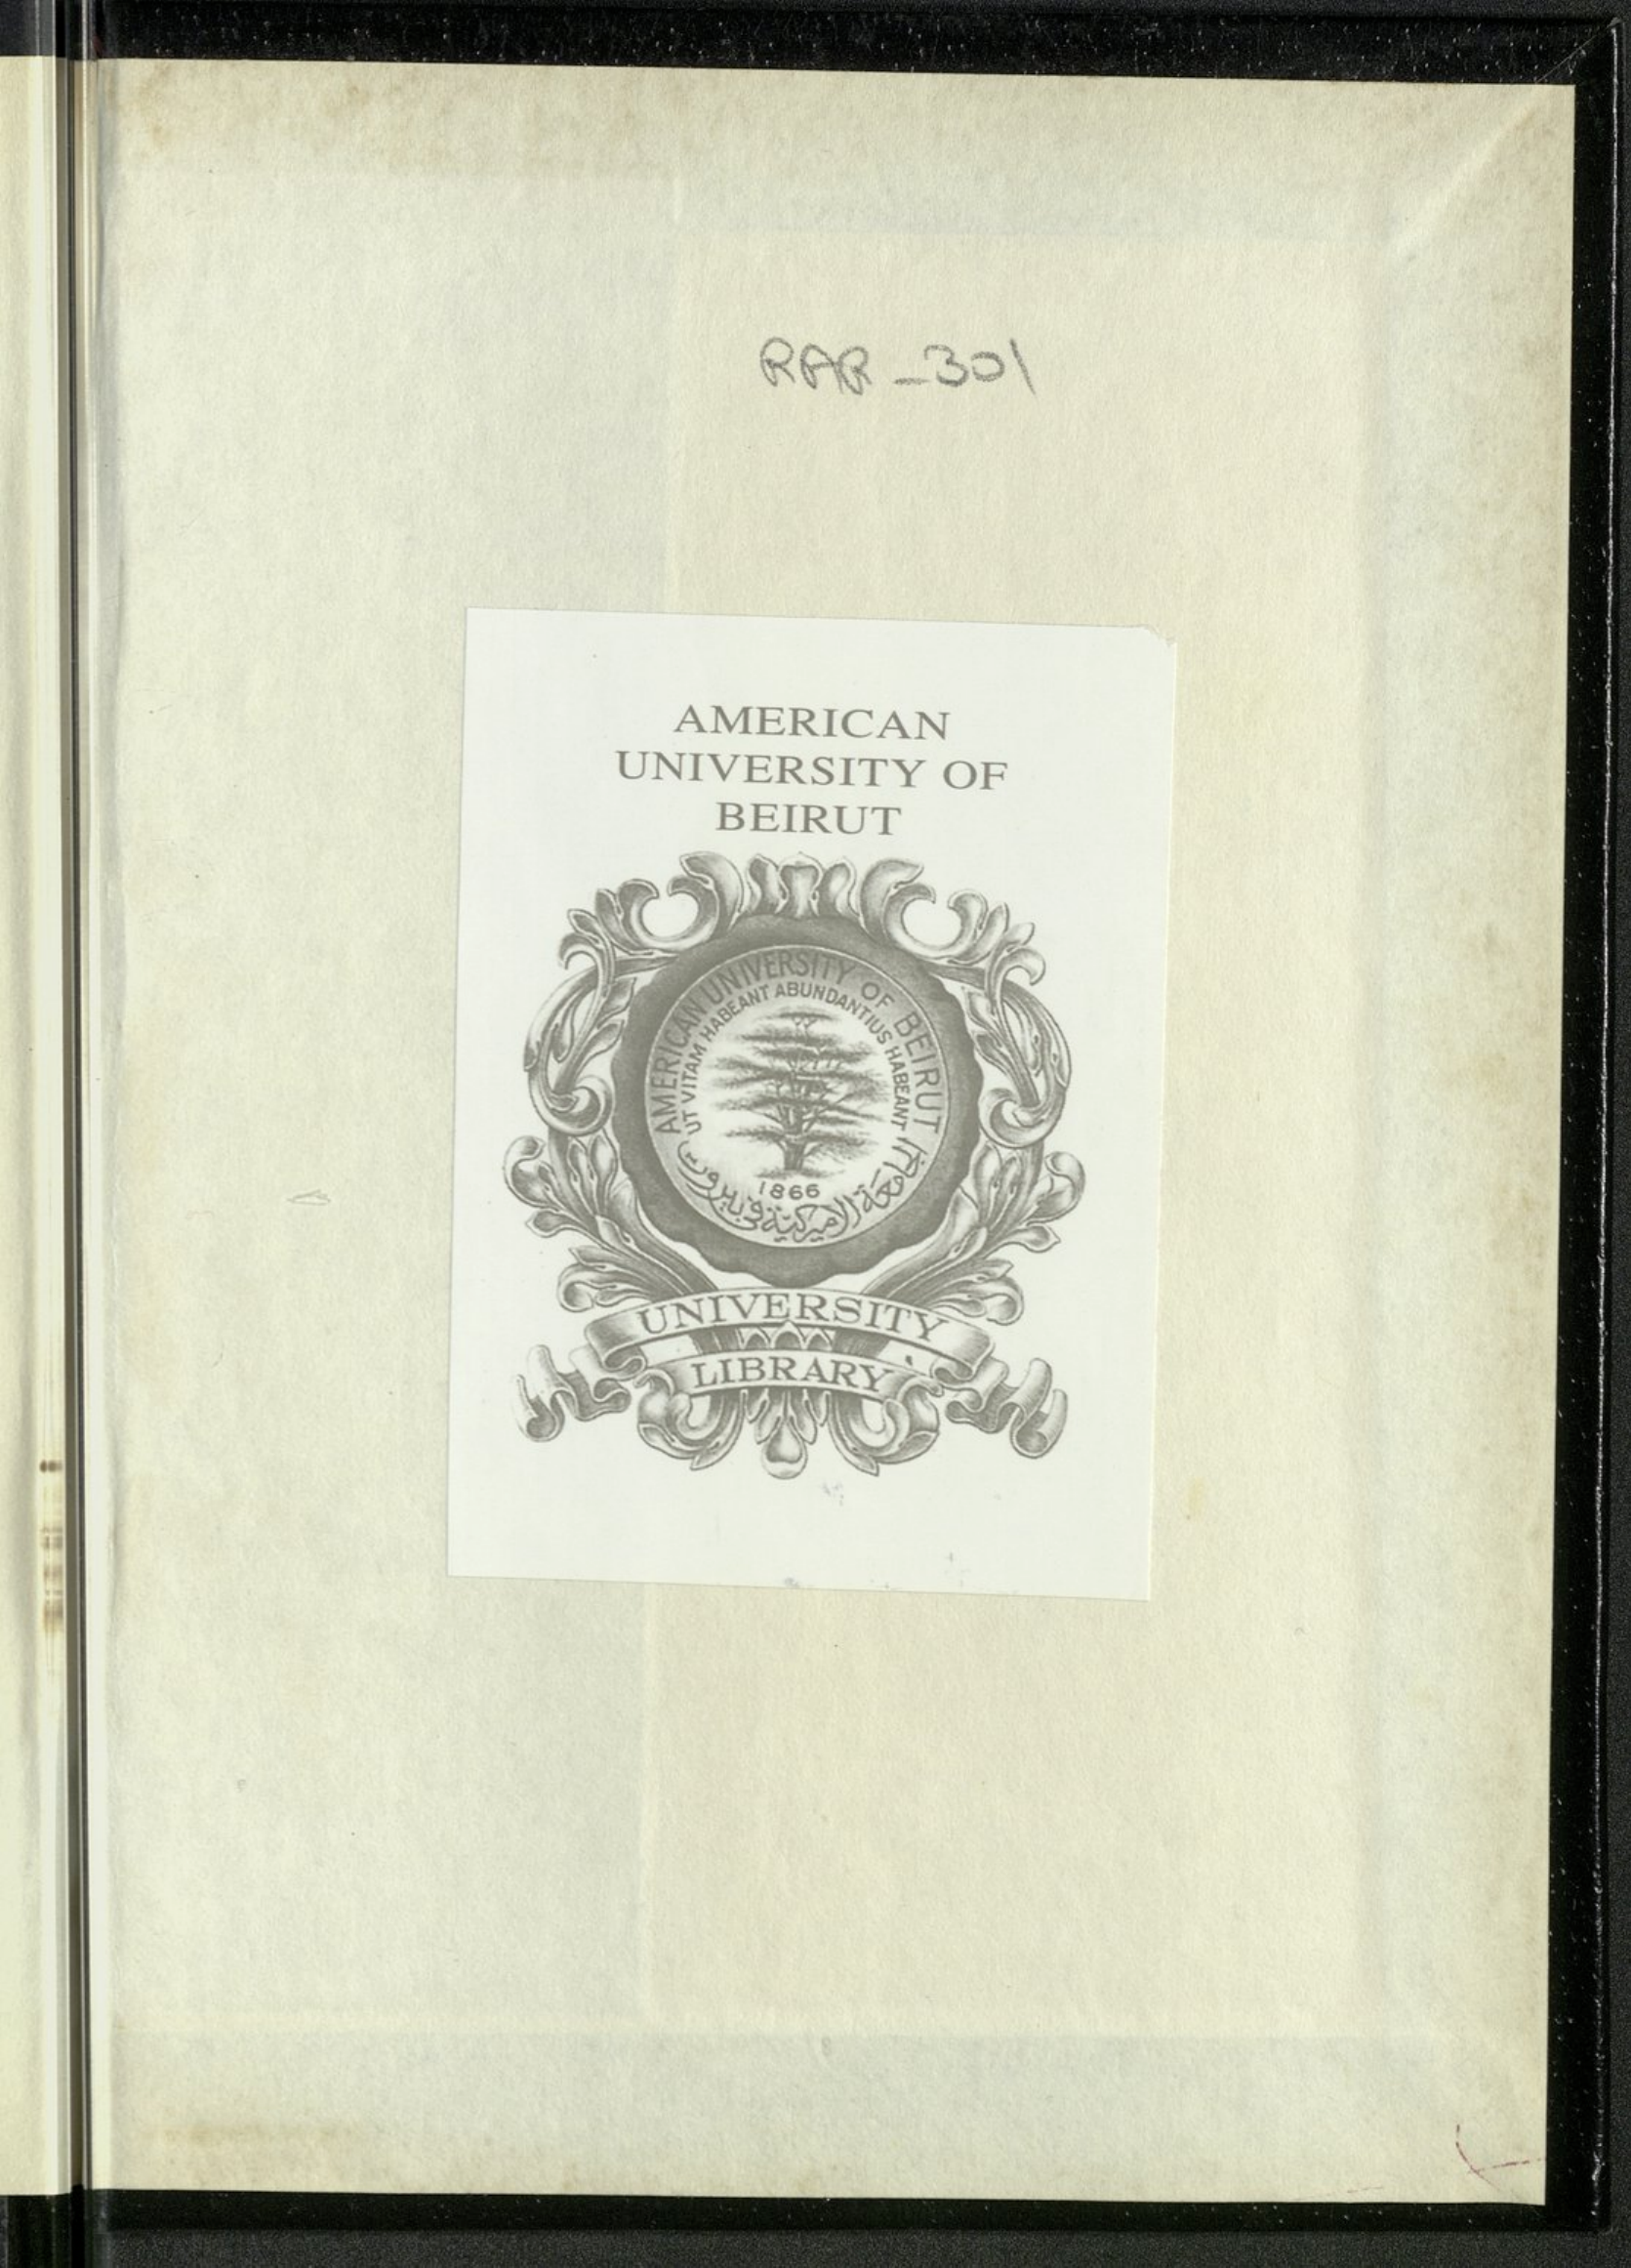 RAR_301
AMERICAN
UNIVERSITY OF
BEIRUT
AMERICAN UNIVERSITY OF BEIRUT
UT VITAM HABEANT ABUNDANTIUS HABEANT
1866
الجامعة الاميركية في بيروت
UNIVERSITY
LIBRARY